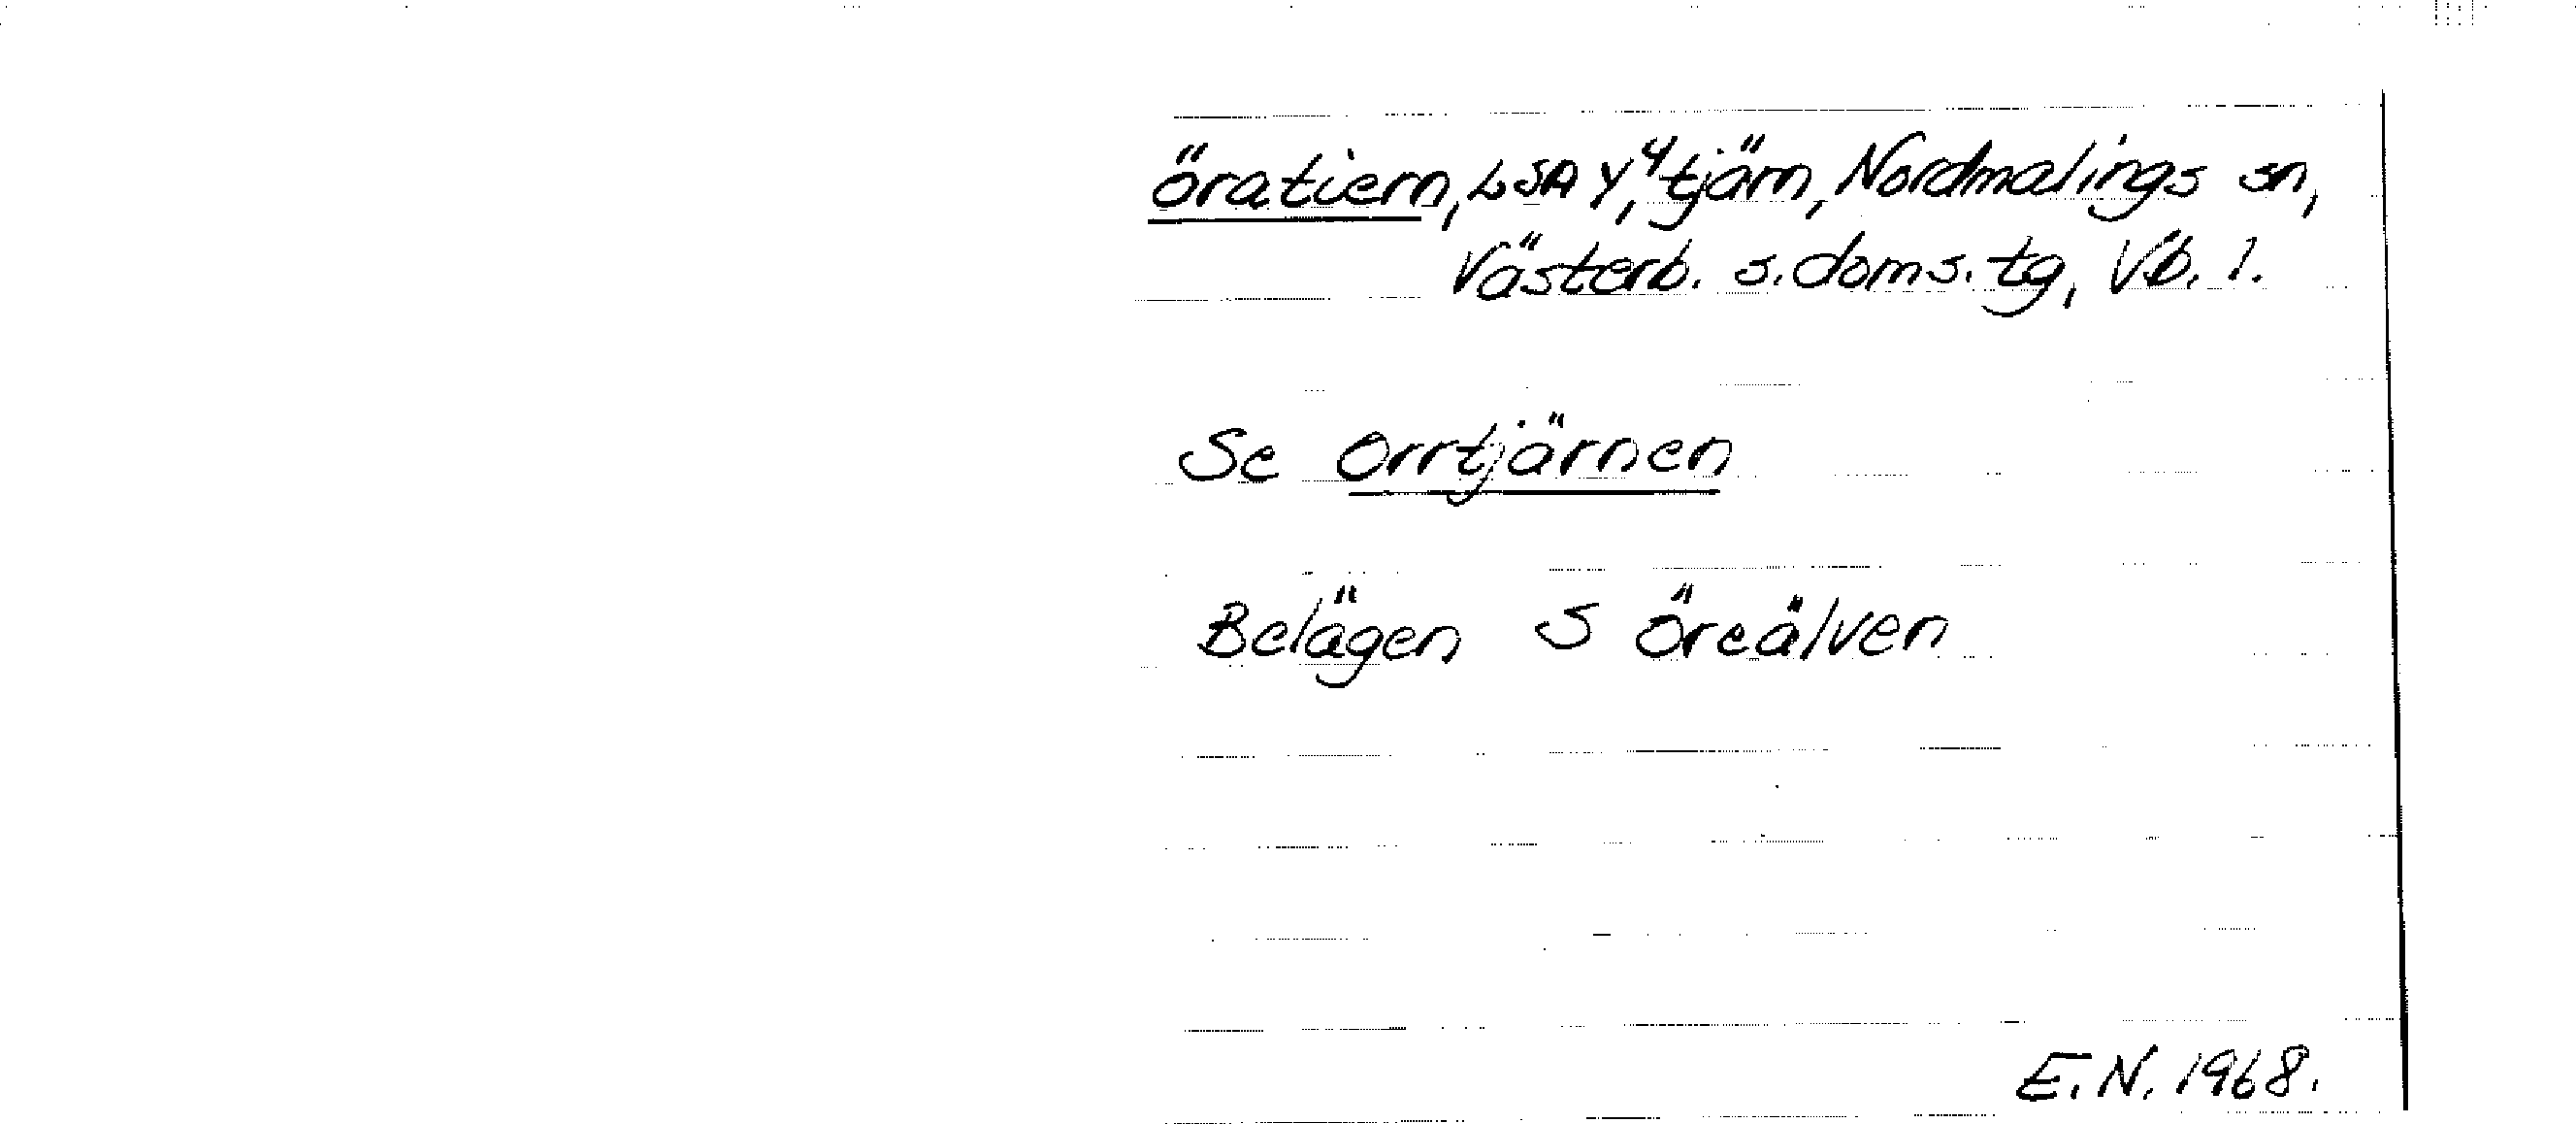 öratiern, LSA Y⁴, tjärn, Nordmalings sn,
Västerb. s. doms. tg, Vb. l.
Se Orrtjärnen
Belägen S Öreälven
E.N. 1968.